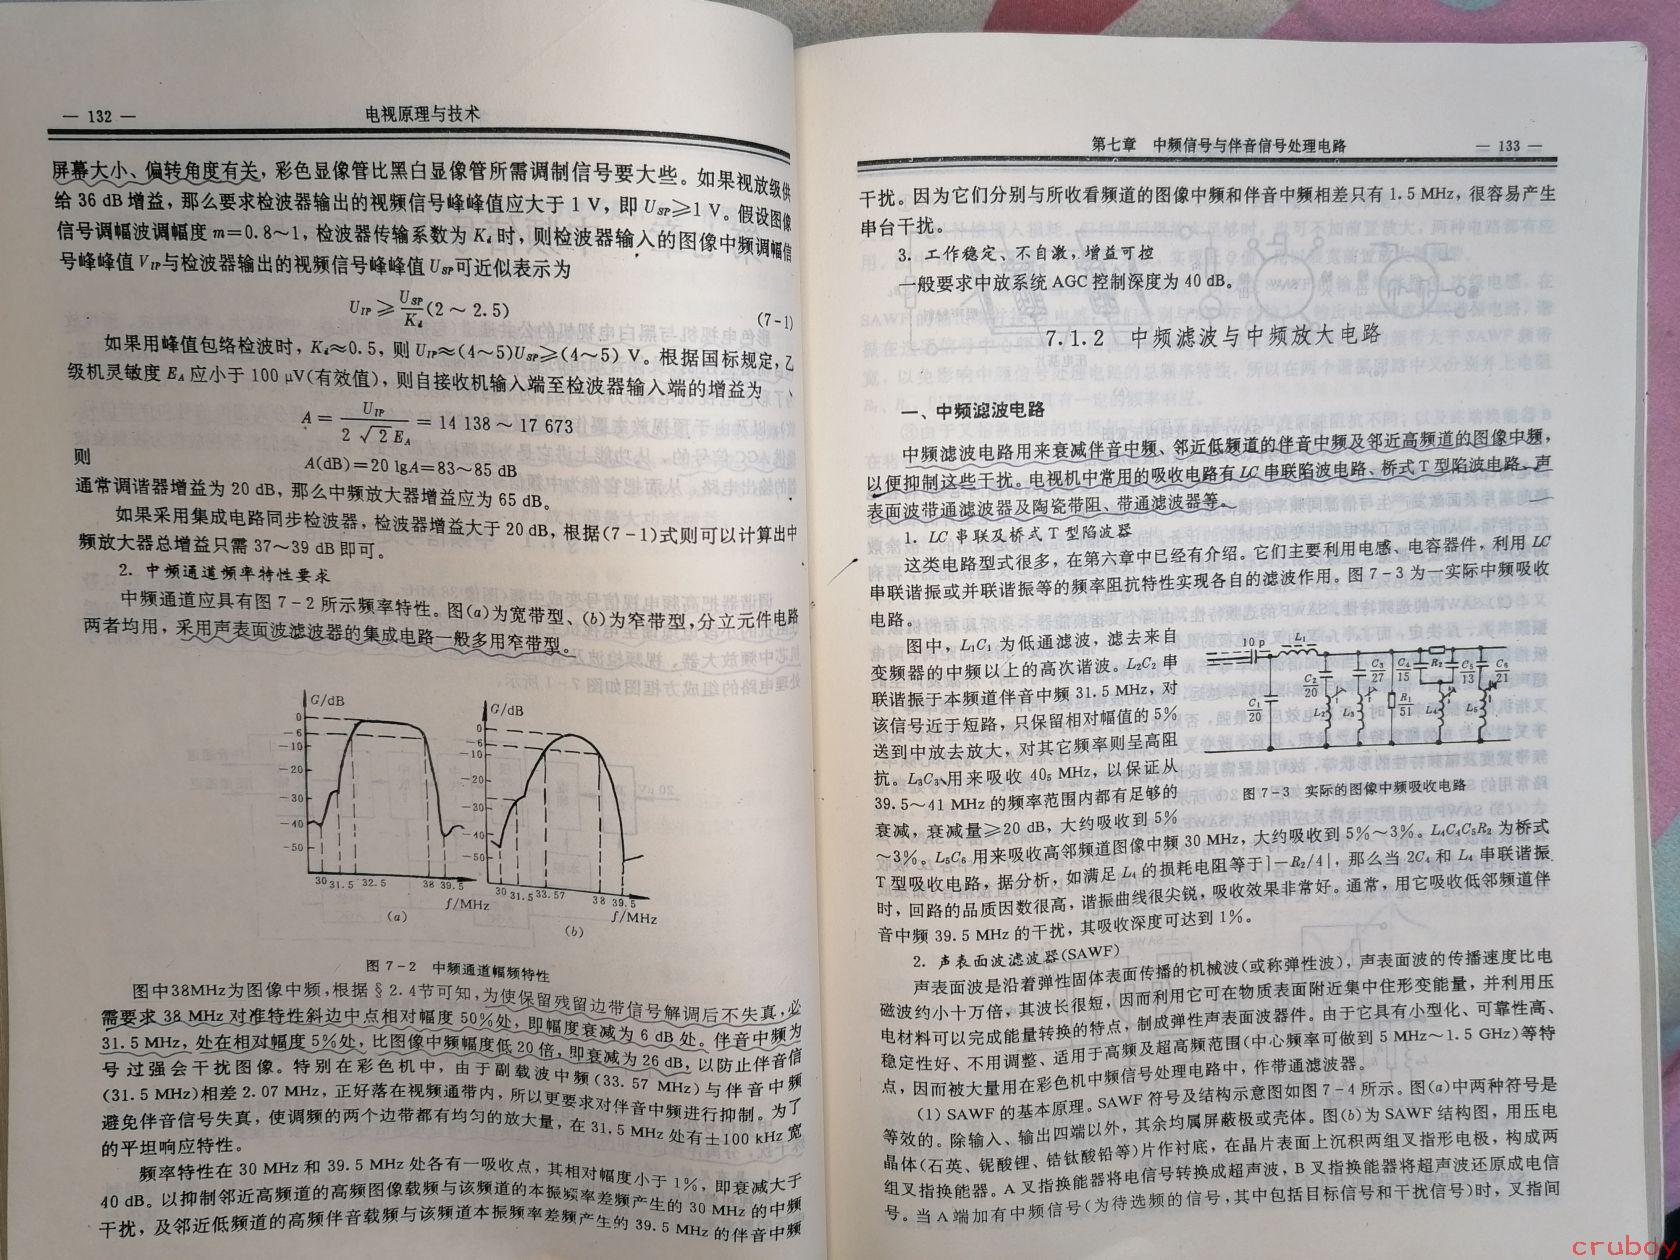 — 132 —
电视原理与技术
屏幕大小、偏转角度有关，彩色显像管比黑白显像管所需调制信号要大些。如果视放级供
给 36 dB 增益，那么要求检波器输出的视频信号峰峰值应大于 1 V，即 USP≥1 V。假设图像
信号调幅波调幅度 m=0.8～1，检波器传输系数为 Kd 时，则检波器输入的图像中频调幅信
号峰峰值 VIP与检波器输出的视频信号峰峰值 USP可近似表示为
UIP ≥ USP/Kd (2 ～ 2.5)
(7-1)
如果用峰值包络检波时，Kd≈0.5，则 UIP≈(4～5)USP≥(4～5) V。根据国标规定，乙
级机灵敏度 EA 应小于 100 μV(有效值)，则自接收机输入端至检波器输入端的增益为
A = UIP / 2 √2 EA = 14 138 ～ 17 673
则
A(dB)=20 lgA=83～85 dB
通常调谐器增益为 20 dB，那么中频放大器增益应为 65 dB。
如果采用集成电路同步检波器，检波器增益大于 20 dB，根据(7-1)式则可以计算出中
频放大器总增益只需 37～39 dB 即可。
2. 中频通道频率特性要求
中频通道应具有图 7-2 所示频率特性。图(a)为宽带型、(b)为窄带型，分立元件电路
两者均用，采用声表面波滤波器的集成电路一般多用窄带型。
G/dB
0
-6
-10
-20
-30
-40
-50
30 31.5 32.5 38 39.5
f/MHz
(a)
G/dB
0
-6
-10
-20
-30
-40
-50
30 31.5 33.57 38 39.5
f/MHz
(b)
图 7-2 中频通道幅频特性
图中38MHz为图像中频，根据 § 2.4节可知，为使保留残留边带信号解调后不失真，必
需要求 38 MHz 对准特性斜边中点相对幅度 50%处，即幅度衰减为 6 dB 处。伴音中频为
31.5 MHz，处在相对幅度 5%处，比图像中频幅度低 20 倍，即衰减为 26 dB，以防止伴音信
号过强会干扰图像。特别在彩色机中，由于副载波中频(33.57 MHz)与伴音中频
(31.5 MHz)相差 2.07 MHz，正好落在视频通带内，所以更要求对伴音中频进行抑制。为了
避免伴音信号失真，使调频的两个边带都有均匀的放大量，在 31.5 MHz 处有±100 kHz 宽
的平坦响应特性。
频率特性在 30 MHz 和 39.5 MHz 处各有一吸收点，其相对幅度小于 1%，即衰减大于
40 dB。以抑制邻近高频道的高频图像载频与该频道的本振频率差频产生的 30 MHz 的中频
干扰，及邻近低频道的高频伴音载频与该频道本振频率差频产生的 39.5 MHz 的伴音中频
第七章 中频信号与伴音信号处理电路
— 133 —
干扰。因为它们分别与所收看频道的图像中频和伴音中频相差只有 1.5 MHz，很容易产生
串台干扰。
3. 工作稳定、不自激，增益可控
一般要求中放系统 AGC 控制深度为 40 dB。
7.1.2 中频滤波与中频放大电路
一、中频滤波电路
中频滤波电路用来衰减伴音中频、邻近低频道的伴音中频及邻近高频道的图像中频，
以便抑制这些干扰。电视机中常用的吸收电路有 LC 串联陷波电路、桥式 T 型陷波电路、声
表面波带通滤波器及陶瓷带阻、带通滤波器等。
1. LC 串联及桥式 T 型陷波器
这类电路型式很多，在第六章中已经有介绍。它们主要利用电感、电容器件，利用 LC
串联谐振或并联谐振等的频率阻抗特性实现各自的滤波作用。图 7-3 为一实际中频吸收
电路。
图中，L1C1 为低通滤波，滤去来自
变频器的中频以上的高次谐波。L2C2 串
联谐振于本频道伴音中频 31.5 MHz，对
该信号近于短路，只保留相对幅值的 5%
送到中放去放大，对其它频率则呈高阻
抗。L3C3 用来吸收 40.5 MHz，以保证从
39.5～41 MHz 的频率范围内都有足够的
衰减，衰减量≥20 dB，大约吸收到 5%
～3%。L5C6 用来吸收高邻频道图像中频 30 MHz，大约吸收到 5%～3%。L4C4C5R2 为桥式
T 型吸收电路，据分析，如满足 L4 的损耗电阻等于|-R2/4|，那么当 2C4 和 L4 串联谐振
时，回路的品质因数很高，谐振曲线很尖锐，吸收效果非常好。通常，用它吸收低邻频道伴
音中频 39.5 MHz 的干扰，其吸收深度可达到 1%。
10 p
L1
C1
20
C2
20
L2
C3
27
L3
C4
15
R1
51
R2
C5
13
L4
C6
21
L5
图 7-3 实际的图像中频吸收电路
2. 声表面波滤波器(SAWF)
声表面波是沿着弹性固体表面传播的机械波(或称弹性波)，声表面波的传播速度比电
磁波约小十万倍，其波长很短，因而利用它可在物质表面附近集中住形变能量，并利用压
电材料可以完成能量转换的特点，制成弹性声表面波器件。由于它具有小型化、可靠性高、
稳定性好、不用调整、适用于高频及超高频范围(中心频率可做到 5 MHz～1.5 GHz)等特
点，因而被大量用在彩色机中频信号处理电路中，作带通滤波器。
(1) SAWF 的基本原理。SAWF 符号及结构示意图如图 7-4 所示。图(a)中两种符号是
等效的。除输入、输出四端以外，其余均属屏蔽极或壳体。图(b)为 SAWF 结构图，用压电
晶体(石英、铌酸锂、锆钛酸铅等)片作衬底，在晶片表面上沉积两组叉指形电极，构成两
组叉指换能器。A 叉指换能器将电信号转换成超声波，B 叉指换能器将超声波还原成电信
号。当 A 端加有中频信号(为待选频的信号，其中包括目标信号和干扰信号)时，叉指间
cruboy